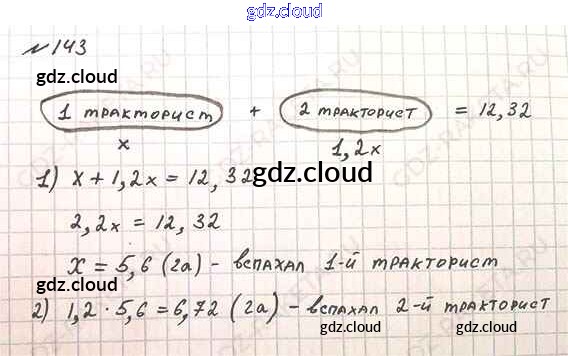 gdz.cloud
№ 143
gdz.cloud
1 тракторист + 2 тракторист = 12,32
x 1,2x
1) x + 1,2x = 12,32 gdz.cloud
2,2x = 12,32
x = 5,6 (га) - вспахал 1-й тракторист
gdz.cloud
2) 1,2 · 5,6 = 6,72 (га) - вспахал 2-й тракторист
gdz.cloud gdz.cloud
gdz.cloud